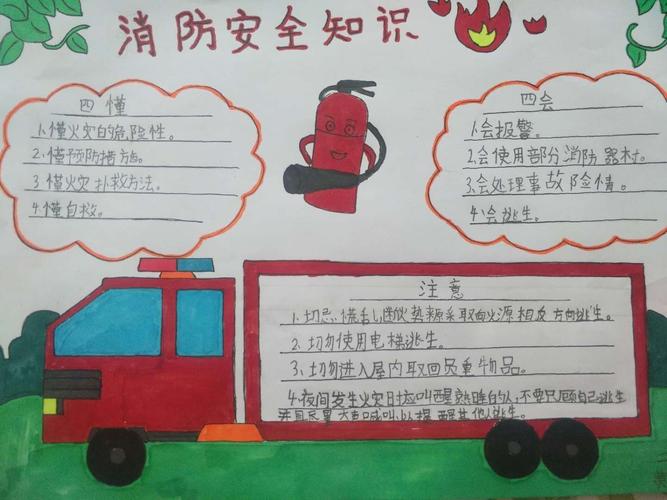 消防安全知识
四懂
1.懂火灾的危险性。
2.懂预防措施。
3.懂火灾扑救方法。
4.懂自救。
四会
1.会报警。
2.会使用部分消防器材。
3.会处理事故险情。
4.会逃生。
注意
1.切忌慌乱,断 势 采取向火源相反方向逃生。
2.切勿使用电梯逃生。
3.切勿进入屋内取回贵重物品。
4.夜间发生火灾时应叫醒熟睡的人,不要只顾自己逃生
并且尽量大声喊叫,以提醒其他人逃生。